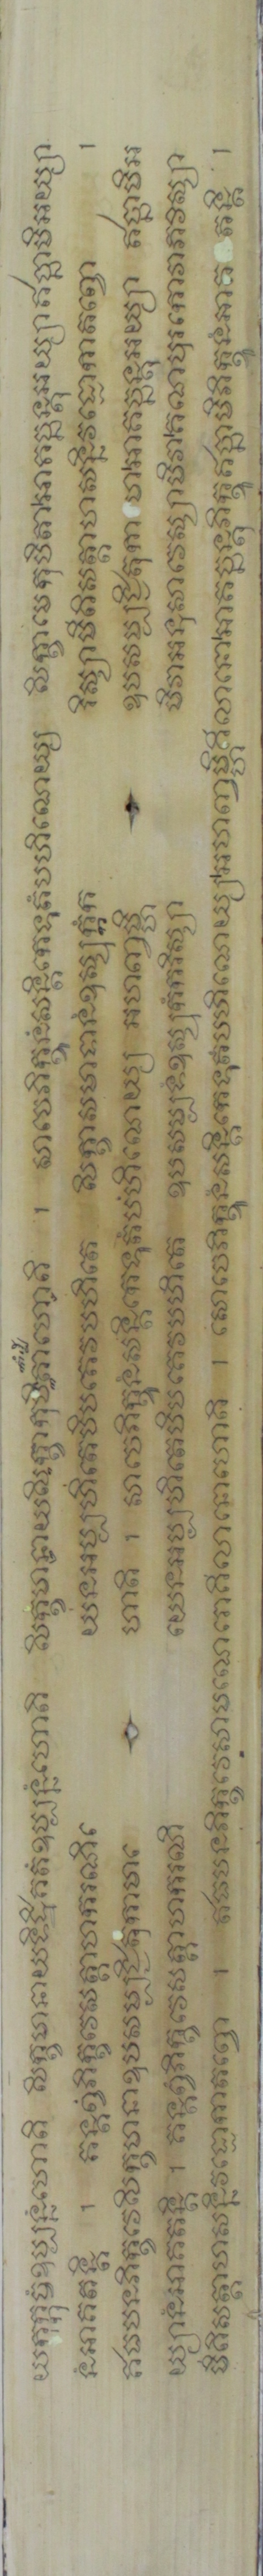 យកុក្កុច្ចំឧប្បន្នំហោតិ សិក្ខមានាយទិដ្ឋិគតំឧប្បន្នំហោតិ សិក្ខមានាយសិក្ខាកុបិតាហោតិ ។ សាចេភិក្ខូនំសន្តិកេទូតំបហិណេយ្យ សិក្ខាមេកុបិតាអាគច្ឆន្តុអយ្យាឥច្ឆាមិអយ្យា
នំអាគតន្តិ ។ គន្តព្វំភិក្ខវេសត្តាហករណីយេនអប្បហិតេបិបគេវបហិតេ សិក្ខាសមាទានំឧស្សុក្កំករិស្សាមីតិសត្តាហសន្និវដ្ដោកាតព្វោ ។
ឥធបនភិក្ខវេសិក្ខមានាឧបសម្បជ្ជិតុកាមាហោតិ ។ សាចេភិក្ខូនំសន្តិកេទូតំបហិណេយ្យ អហញ្ហិ ឧបសម្បជ្ជិតុកាមាអាគច្ឆន្តុអយ្យា ឥច្ឆាមិអ
យ្យានំអាគតន្តិ ។ គន្តព្វំភិក្ខវេសត្តាហករណីយេនអប្បហិតេបិបគេវបហិតេ ឧបសម្បទំឧស្សុក្កំករិស្សាមិវាអនុសាវេស្សាមិវាគណបូរកោវាភវិស្សា
មីតិសត្តាហសន្និវដ្ដោកាតព្វោ ។ ឥធបនភិក្ខវេសាមណេរោគិលានោហោតិ ។ សោចេភិក្ខូនំសន្តិកេទូតំបហិណេយ្យអហញ្ហិគិលានោអាគច្ឆន្តុភិក្ខូឥច្ឆាមិភិក្ខូនំអាគតន្តិ ។